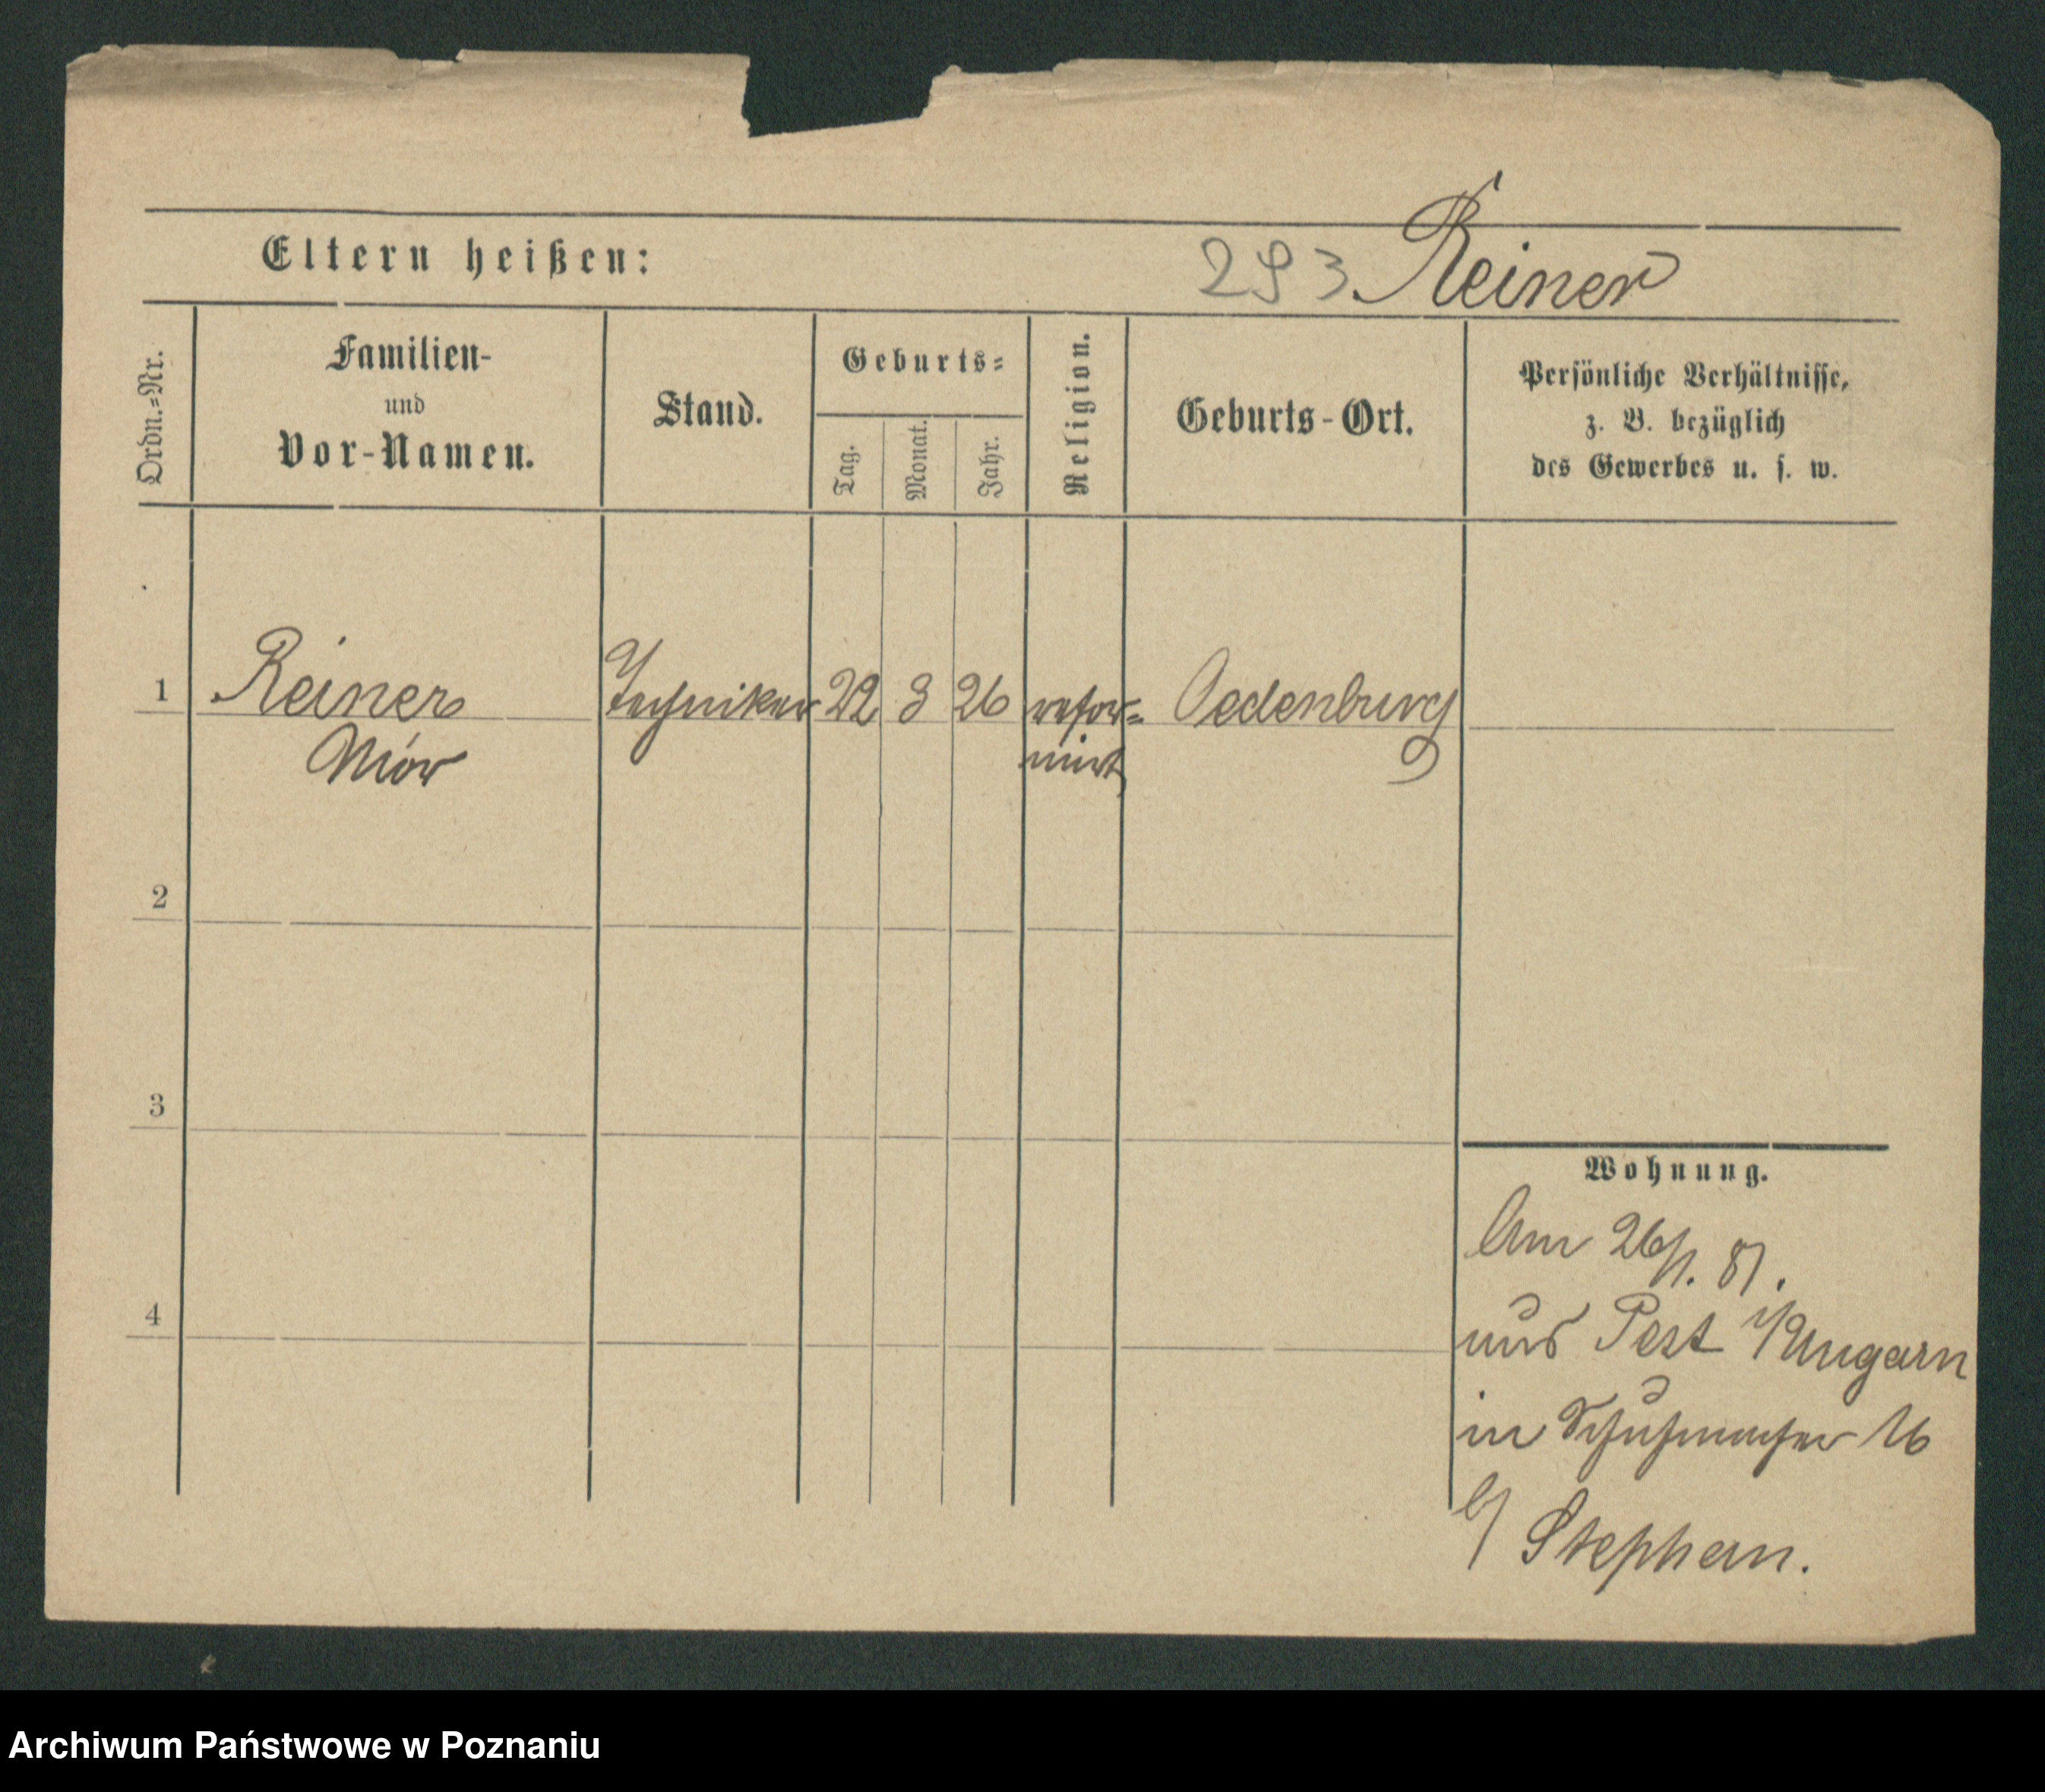 Eltern heißen:
293. Reiner
Ordn.=Nr.
Familien-
und
Vor-Namen.
Stand.
Geburts=
Tag.
Monat.
Jahr.
Religion.
Geburts-Ort.
Persönliche Verhältnisse,
z. B. bezüglich
des Gewerbes u. s. w.
1 Reiner Techniker 22 3 26 refor= Oedenburg
Mór mirt
2
3
4
Wohnung.
Am 26/1. 81.
aus Pest i/Ungarn
in Schuhmacher 16
b/ Stephan.
Archiwum Państwowe w Poznaniu